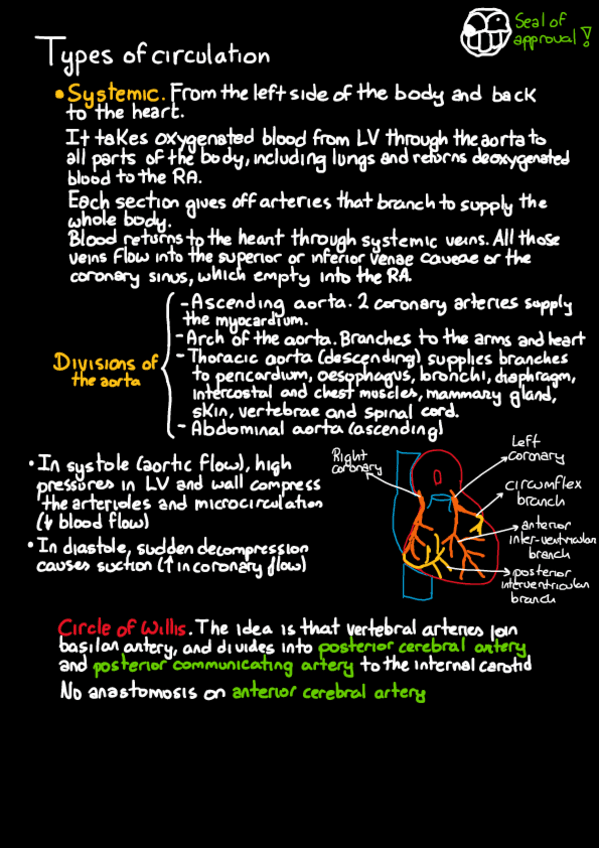 Seal of
approval!
Types of circulation
• Systemic. From the left side of the body and back
to the heart.
It takes oxygenated blood from LV through the aorta to
all parts of the body, including lungs and returns deoxygenated
blood to the RA.
Each section gives off arteries that branch to supply the
whole body.
Blood returns to the heart through systemic veins. All those
veins flow into the superior or inferior venae caveae or the
coronary sinus, which empty into the RA.
Divisions of
the aorta
- Ascending aorta. 2 coronary arteries supply
the myocardium.
- Arch of the aorta. Branches to the arms and heart
- Thoracic aorta (descending) supplies branches
to pericardium, oesophagus, bronchi, diaphragm,
intercostal and chest muscles, mammary gland,
skin, vertebrae and spinal cord.
- Abdominal aorta (ascending)
• In systole (aortic flow), high
pressures in LV and wall compress
the arterioles and microcirculation
(↓ blood flow)
• In diastole, sudden decompression
causes suction (↑ in coronary flow)
Right
coronary
Left
coronary
circumflex
branch
anterior
inter-ventricular
branch
posterior
interventricular
branch
Circle of Willis. The idea is that vertebral arteries join
basilar artery, and divides into posterior cerebral artery
and posterior communicating artery to the internal carotid
No anastomosis on anterior cerebral artery